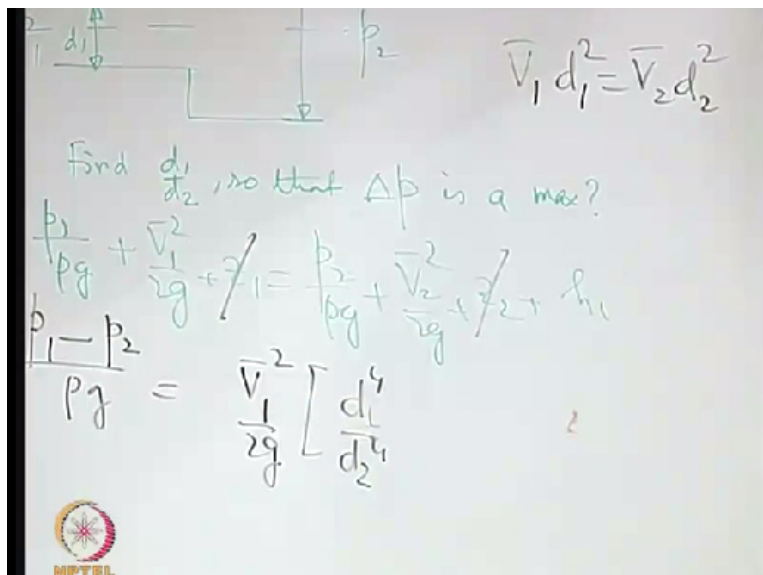 d₁
p₂
V̄₁ d₁² = V̄₂ d₂²
Find d₁/d₂, so that Δp is a max?
p₁/ρg + V̄₁²/2g + z₁ = p₂/ρg + V̄₂²/2g + z₂ + h₁
(p₁ − p₂)/ρg = V̄₁²/2g [ d₁⁴/d₂⁴
NPTEL